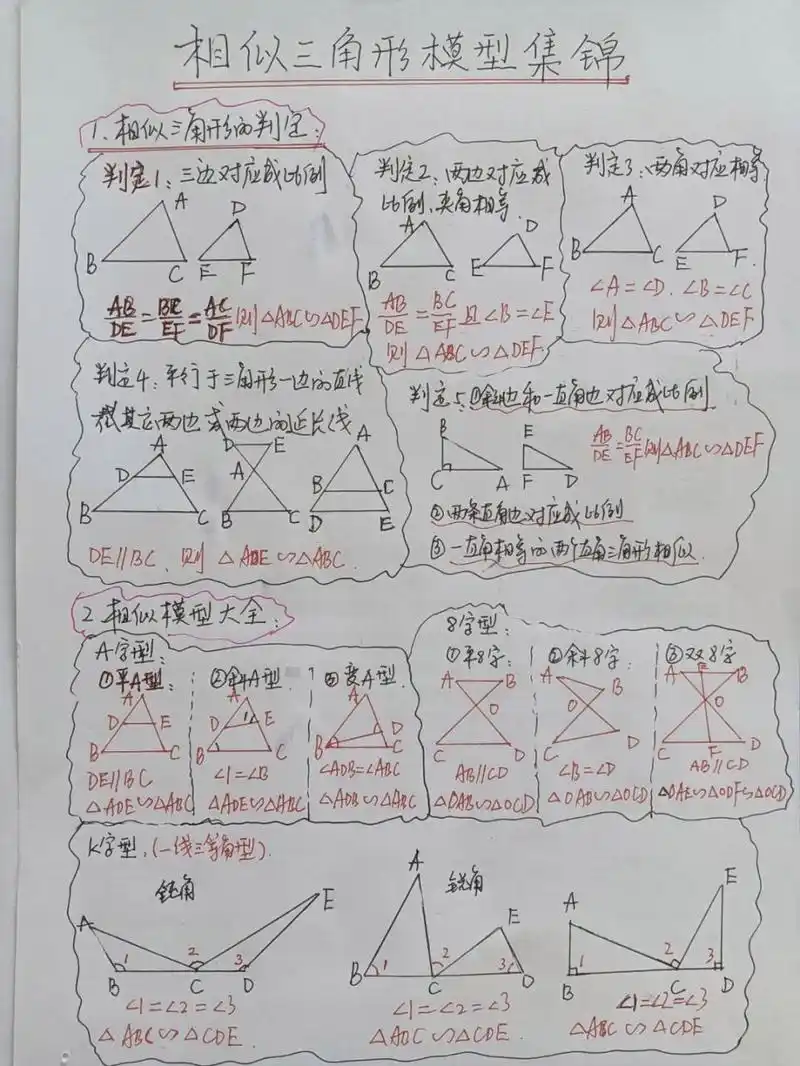 相似三角形模型集锦
1.相似三角形的判定:
判定1:三边对应成比例
A
D
B C E F
AB/DE=BC/EF=AC/DF则△ABC∽△DEF
判定2:两边对应成
比例,夹角相等.
A D
B C E F
AB/DE=BC/EF且∠B=∠E
则△ABC∽△DEF.
判定3:两角对应相等
A D
B C E F
∠A=∠D.∠B=∠C
则△ABC∽△DEF
判定4:平行于三角形一边的直线
截其它两边或两边的延长线
A D E A
D E A B C
B C B C D E
DE//BC,则△ADE∽△ABC.
判定5:①斜边和一直角边对应成比例
B E
C A F D
AB/DE=BC/EF则△ABC∽△DEF
②两条直角边对应成比例
③一直角相等的两个直角三角形相似.
2.相似模型大全:
A字型:
①平A型:
A
D E
B C
DE//BC
△ADE∽△ABC
②斜A型
A
D 1 E
B C
∠1=∠B
△ADE∽△ABC
③变A型.
A
D
B C
∠ADB=∠ABC
△ADB∽△ABC
8字型:
①平8字:
A B
O
C D
AB//CD
△OAB∽△OCD
②斜8字:
A
B
O
C D
∠B=∠D
△OAB∽△OCD
③双8字
A E B
O
C F D
AB//CD
△OAE∽△ODF∽△OCD
K字型,(一线三等角型).
钝角
A E
1 2 3
B C D
∠1=∠2=∠3
△ABC∽△CDE
锐角
A
E
B 1 2 3
C D
∠1=∠2=∠3
△ADC∽△CDE.
E
A
1 2 3
B C D
∠1=∠2=∠3
△ABC∽△CDE